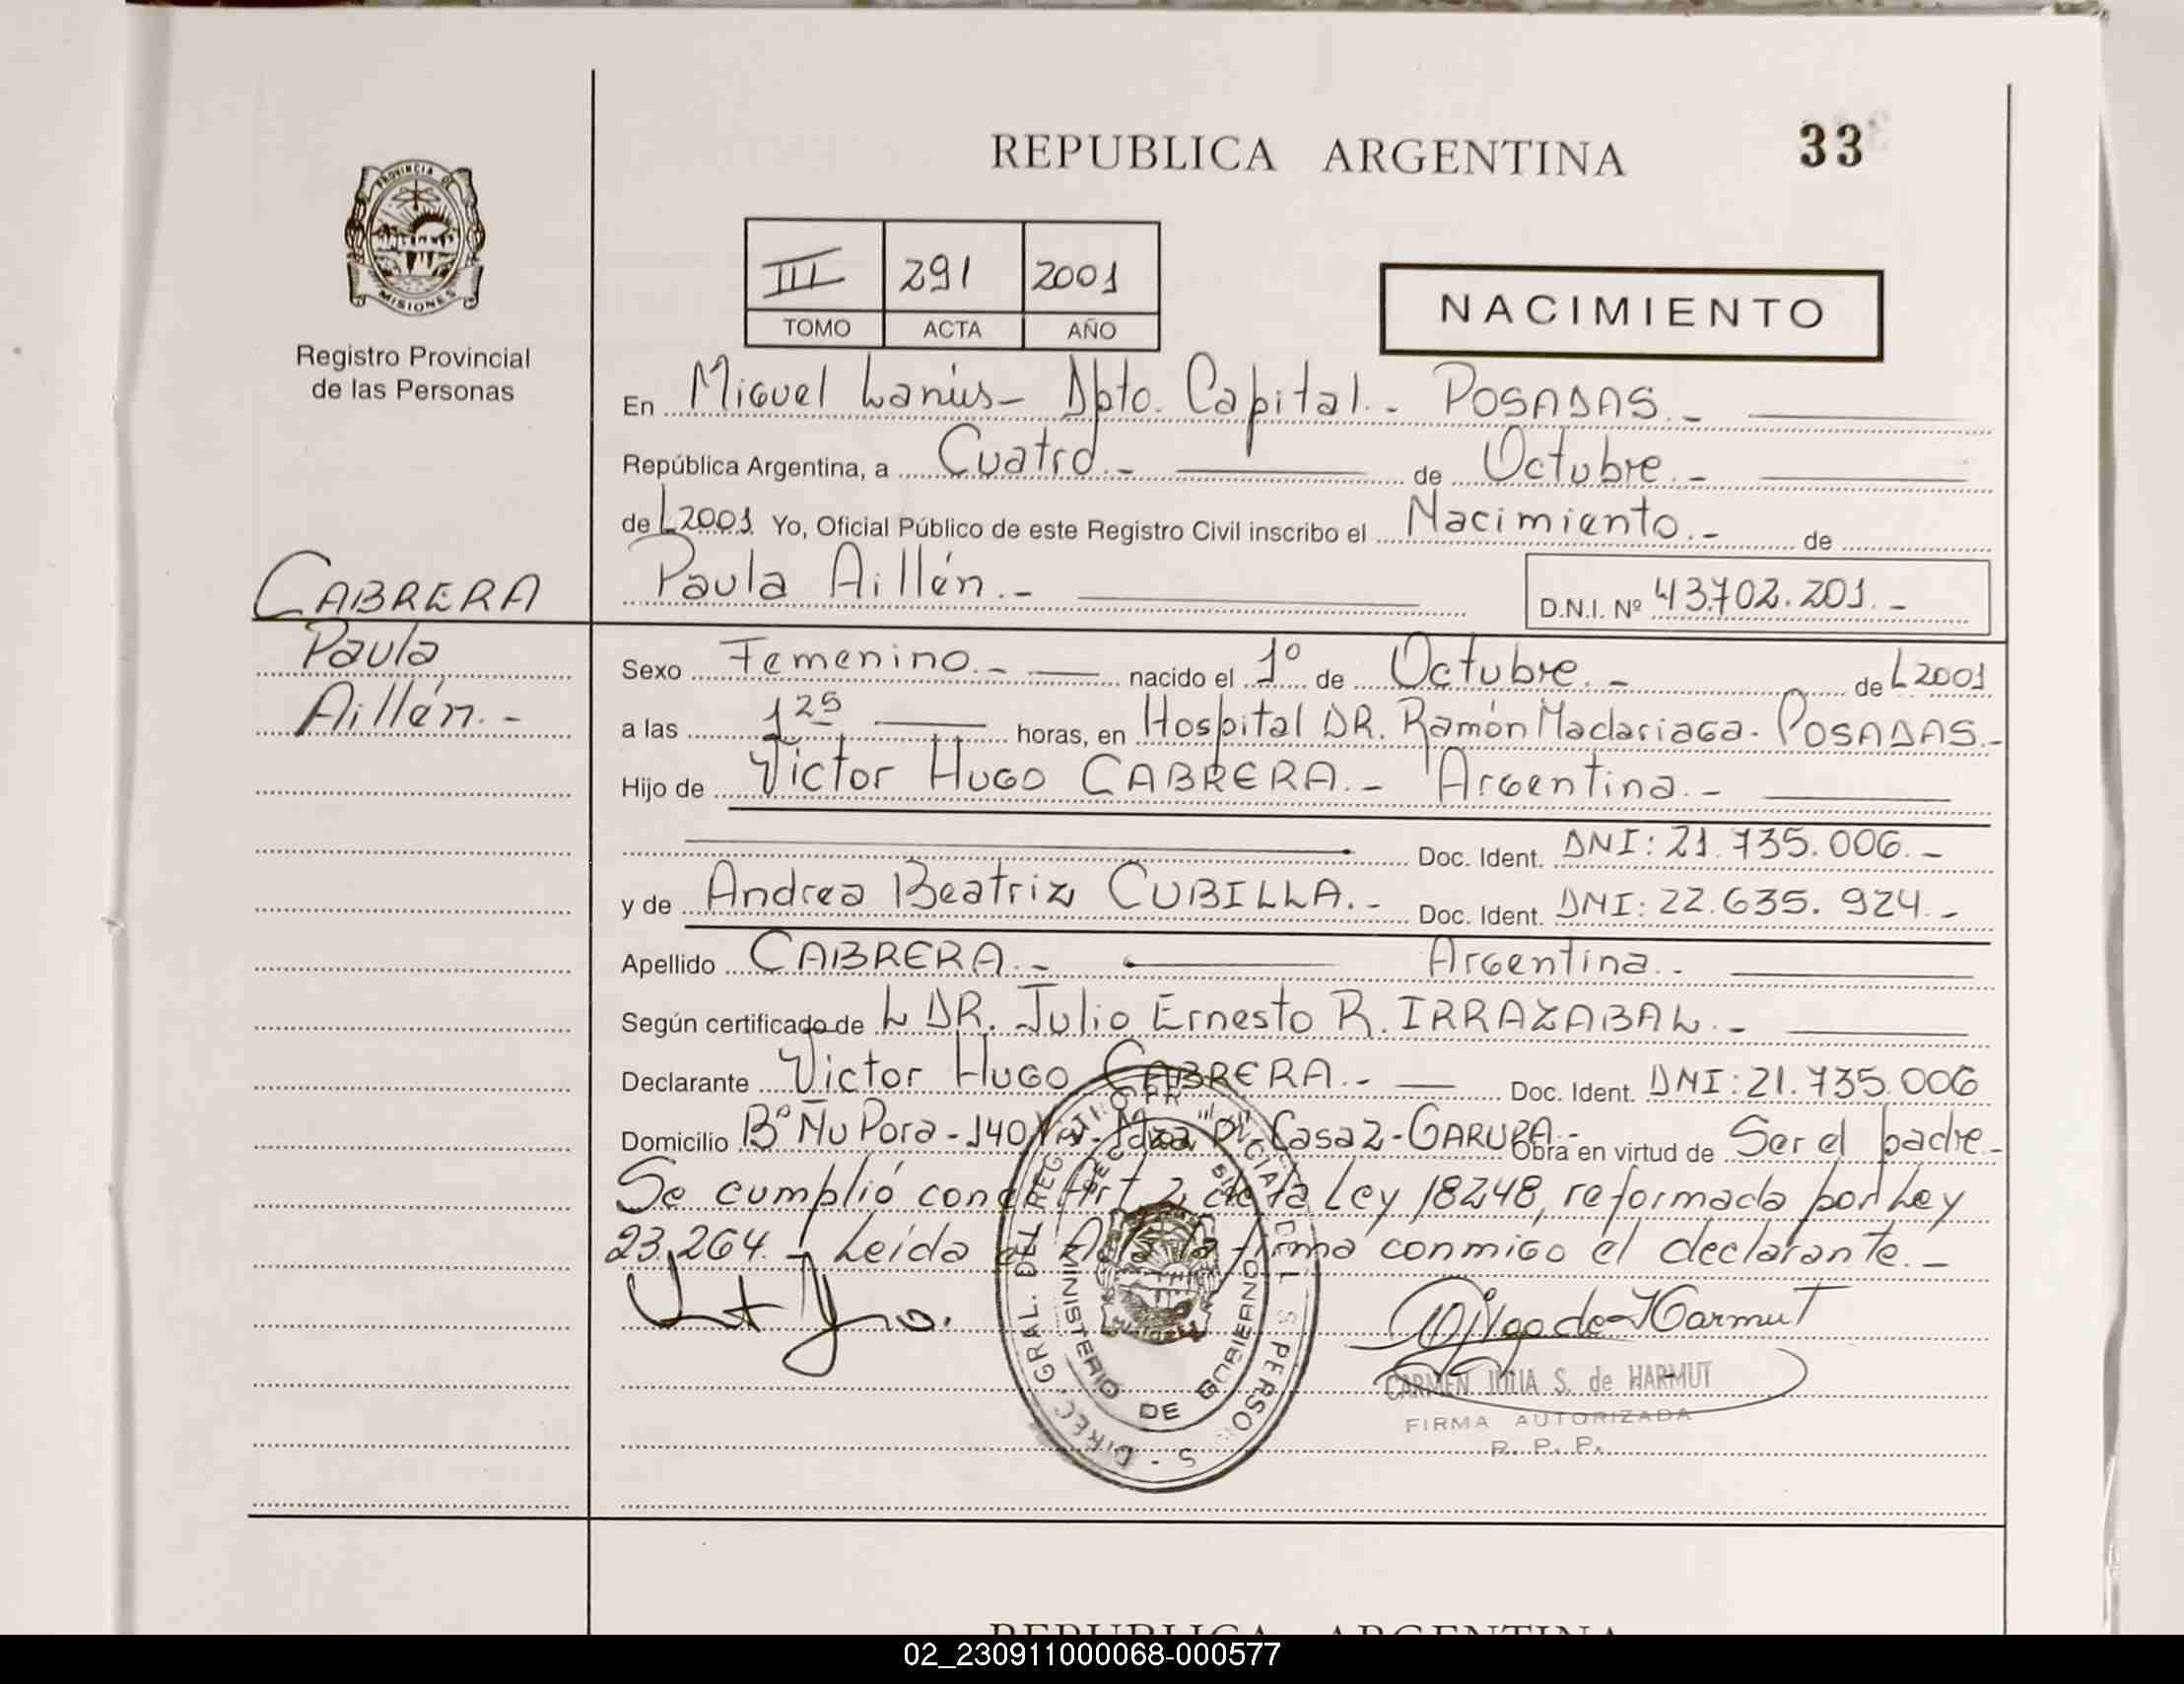 REPUBLICA ARGENTINA
33
PROVINCIA DE
MISIONES
Registro Provincial
de las Personas
III 291 2001
TOMO ACTA AÑO
NACIMIENTO
En Miguel Lanús- Dpto. Capital.- POSADAS.-
República Argentina, a Cuatro.- de Octubre.-
de L2001 Yo, Oficial Público de este Registro Civil inscribo el Nacimiento.- de
Paula Aillén.- D.N.I. Nº 43.702.201.-
CABRERA
Paula
Aillén.-
Sexo Femenino.- nacido el 1º de Octubre.- de L2001
a las 1 25 horas, en Hospital DR. Ramón Madariaga- POSADAS.-
Hijo de Victor Hugo CABRERA.- Argentina.-
Doc. Ident. DNI: 21.735.006.-
y de Andrea Beatriz CUBILLA.- Doc. Ident. DNI: 22.635.924.-
Apellido CABRERA.- Argentina.-
Según certificado de L DR. Julio Ernesto R. IRRAZABAL.-
Declarante Victor Hugo CABRERA.- Doc. Ident. DNI: 21.735.006
Domicilio Bº Ñu Pora - 140 Casa 2-GARUPA.- Obra en virtud de Ser el padre.-
Se cumplió con Art 2 de la Ley 18248, reformada por Ley
23.264.- Leída el Acta la firma conmigo el declarante.-
DIREC. GRAL. DEL REG
MINISTERIO DE GOBIERNO
CARMEN JULIA S. de HARMUT
FIRMA AUTORIZADA
R. P. P.
REPUBLICA ARGENTINA
02_230911000068-000577